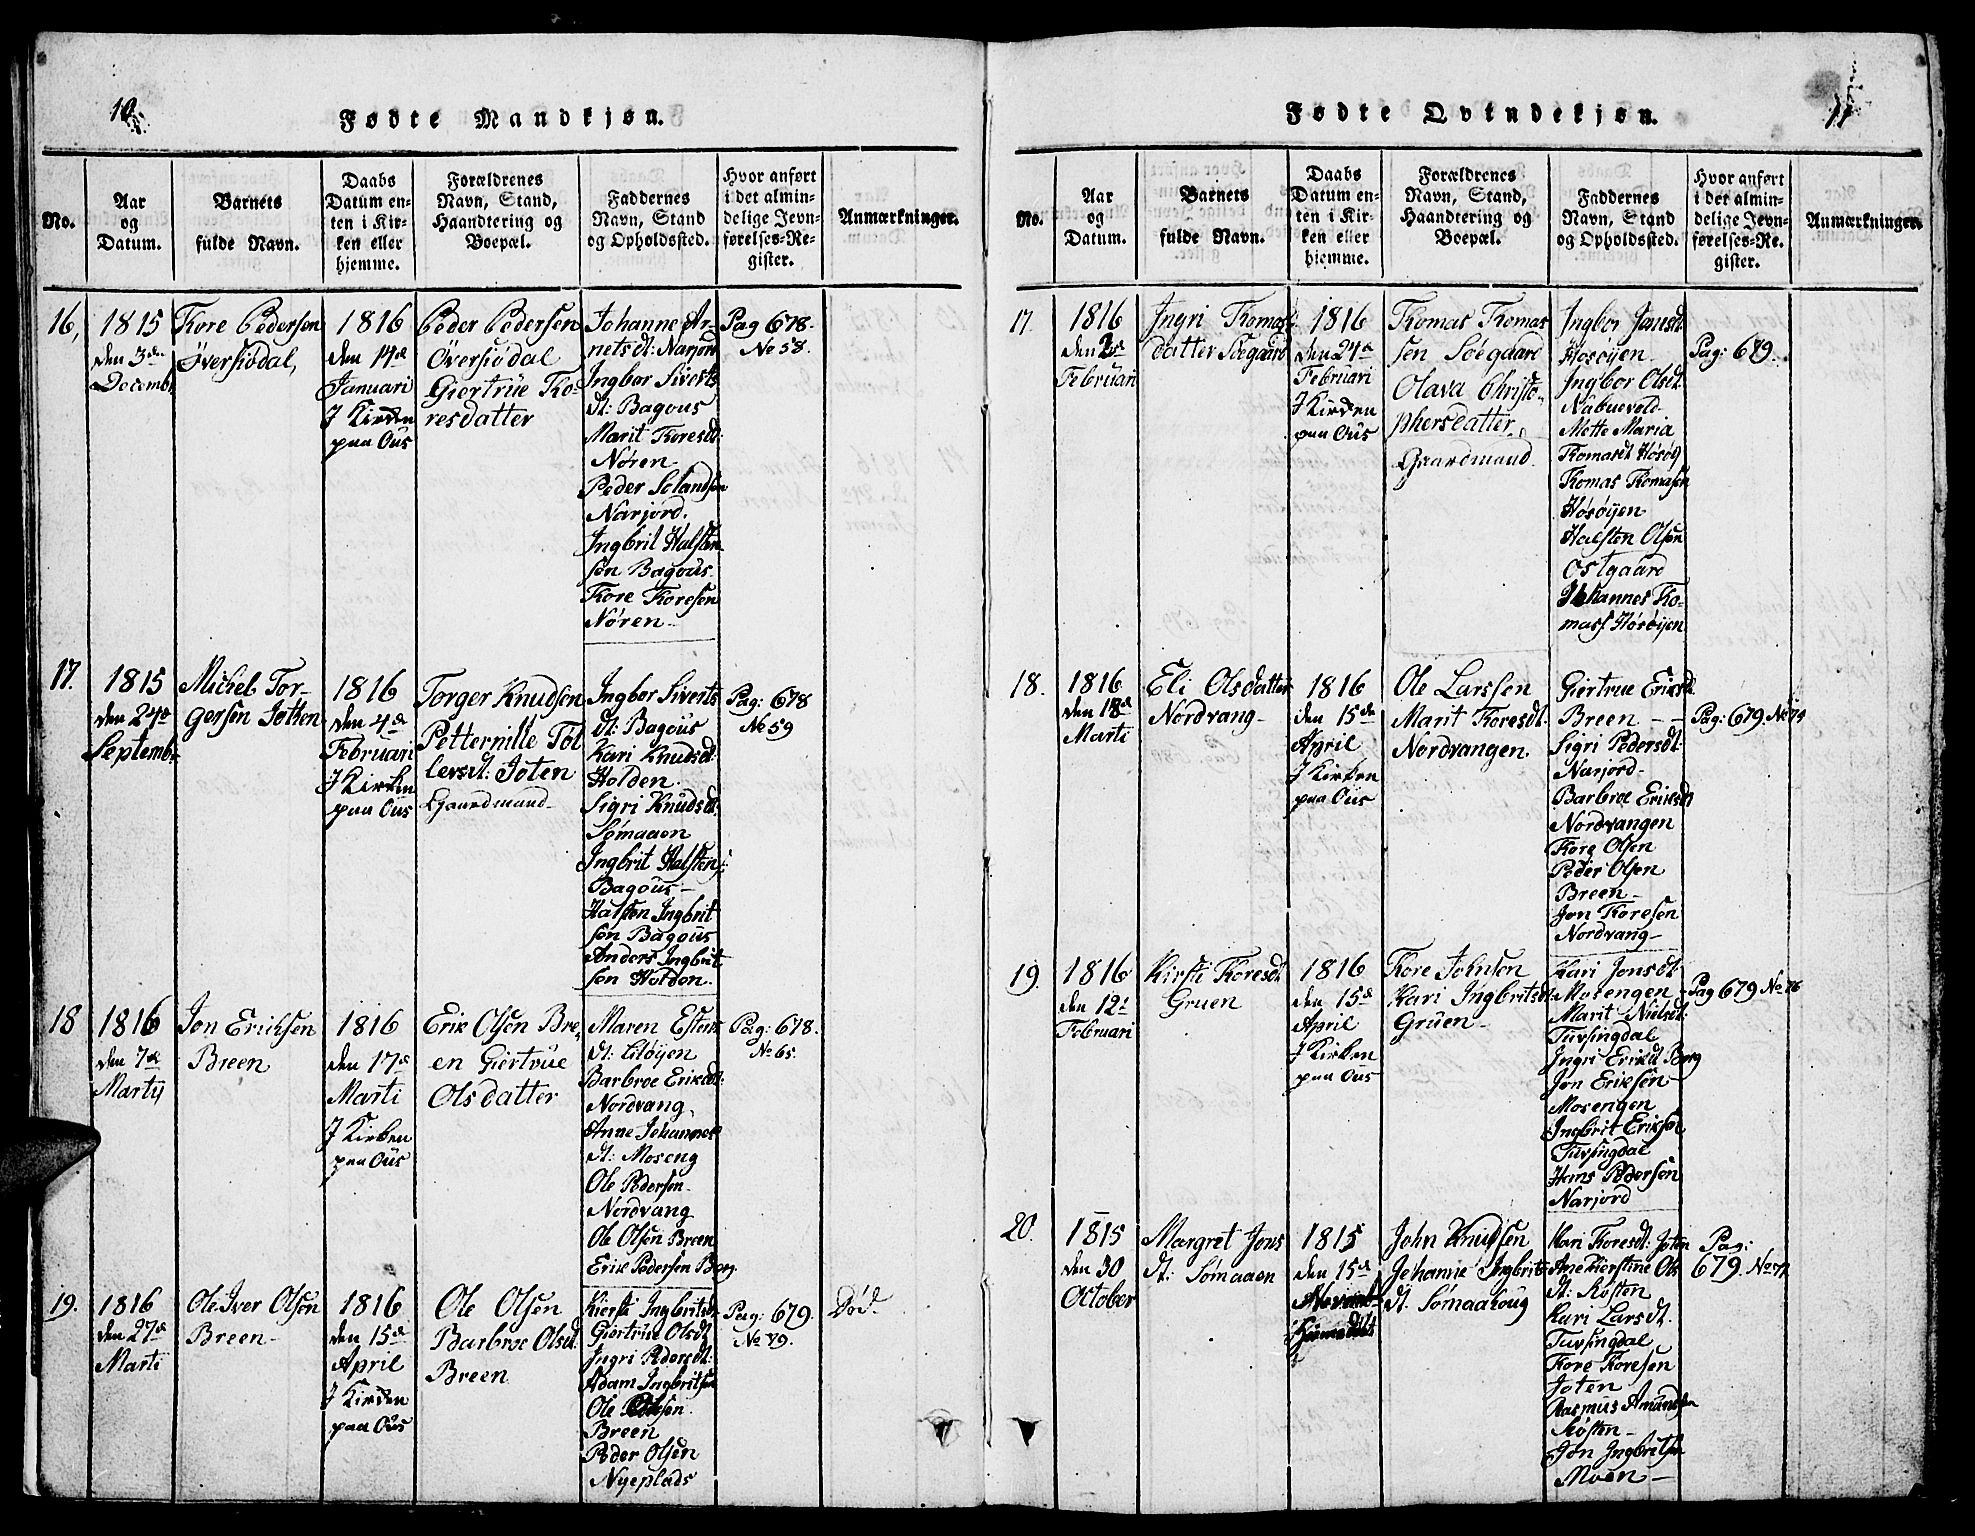 10.
Fødte Mandkjøn.
No.
Aar
og
Datum.
Barnets
fulde Navn.
Daabs
Datum en-
ten i Kir-
ken eller
hjemme.
Forældrenes
Navn, Stand,
Haandtering og
Boepæl.
Faddernes
Navn, Stand
og Opholdssted.
Hvor anført
i det almin-
delige Jevn-
førelses-Re-
gister.
Anmærkninger.
16,
1815
den 3de
Decemb.
Tore Pedersen
Øversiødal,
1816
den 14de
Januari
J Kirken
paa Ous
Peder Pedersen
Øversiødal
Giertrüe To-
resdatter
Johanne Ar-
netsdt: Narjord
Ingbor Siverts
dt: Bagous
Marit Toresdt:
Nøren
Peder Solandsen
Narjord.
Ingbrit Halsten-
søn Bagous
Tore Toresen
Nøren
Pag 678.
No 58.
17.
1815
den 24de
Septemb.
Michel Tor-
gersen Joten
1816
den 4de
Februari
J Kirken
paa Ous
Torger Knudsen
Petternille Tol
levsdt: Joten
Gaardmand
Ingbor Siverts
dt: Bagous
Kari Knudsdt:
Holden
Sigri Knudsdt:
Sømaaen
Ingbrit Halstens:
Bagous
Halsten Ingbrit
søn Bagous
Anders Ingbrit
sen Holden.
Pag: 678
No 59
18
1816
den 7de
Martij
Jon Ericksen
Breen
1816
den 17de
Marti
J Kirken
paa Ous
Eric Olsen Bre,
en Giertrue
Olsdatter
Maren Estens
dt: Liløyen
Barbroe Eriksdt:
Nordvang
Anne Johannes
dt: Moseng
Ole Pedersen
Nordvang
Ole Olsen Breen
Erik Pedersen Borg
Pag: 678.
No 65.
19.
1816
den 27de
Marti
Ole Iver Olsen
Breen
1816
den 15de
April
J Kirken
paa Ous
Ole Olsen
Barbroe Olsdt.
Breen
Kiersti Ingbritsdt
Giertrüe Olsdt
Ingri Pedersdt:
Adam Ingbritsen
Ole Olsen
Breen
Peder Olsen
Nyeplads
Pag: 679.
No 79.
Død
11
Fødte Qvindekjøn.
No.
Aar
og
Datum.
Barnets
fulde Navn.
Daabs
Datum en-
ten i Kir-
ken eller
hjemme.
Forældrenes
Navn, Stand,
Haandtering og
Boepæl.
Faddernes
Navn, Stand
og Opholdssted.
Hvor anført
i det almin-
delige Jevn-
førelses-Re-
gister.
Anmærkninger.
17.
1816
den 2de
Februari
Ingri Tomas
datter Søegaard
1816
den 24de
Februari
J Kirken
paa Ous
Tomas Tomas
sen Søegaard
Olava Christo-
phersdatter,
Gaardmand.
Ingbor Jonsdt
Hosøyen
Ingbor Olsdt.
Nabuevold
Mette Maria
Tomasdt Hosøy
Tomas Tomasen
Hosøyen
Halsten Olsen
Ostgaard
Johannes To-
mass Hosøyen
Pag: 679.
18.
1816
den 18de
Marti
Eli Olsdatter
Nordvang
1816
den 15de
April
J Kirken
paa Ous
Ole Larssen
Marit Toresdt.
Nordvangen
Giertrue Eriksd.
Breen
Sigri Pedersdt:
Narjord
Barbroe Eriksdt
Nordvangen
Tore Olsen
Peder Olsen
Breen
Jon Toresen
Nordvang
Pag: 679. No 74
19.
1816
den 12te
Februari
Kirsti Toresdt
Gruen
1816
den 15de
April
J Kirken
paa Ous
Tore Johnsen
Kari Ingbritsdt.
Gruen
Kari Jonsdt
Mosengen
Marit Nielsdt:
Tufsingdal
Ingri Eriksdt Borg
Jon Eriksen
Mosengen
Ingbrit Eriksen
Tufsingdal
Hans Pedersen
Narjord
Pag 679 No 76
20.
1815
den 30
October
Margret Jons
dt: Sømaaen
1815
den 15de
John Knudsen
Johanne Ingbrits
dt. Sømaahoug
Kari Toresdt: Joten
Ane Kierstine Ols
dt: Kosten
Kari Larsdt.
Tufsingdal
Tore Toresen
Joten
Rasmus Amundsen
Kosten
Jon Ingbritsen
Moen
Pag:
679. No 77